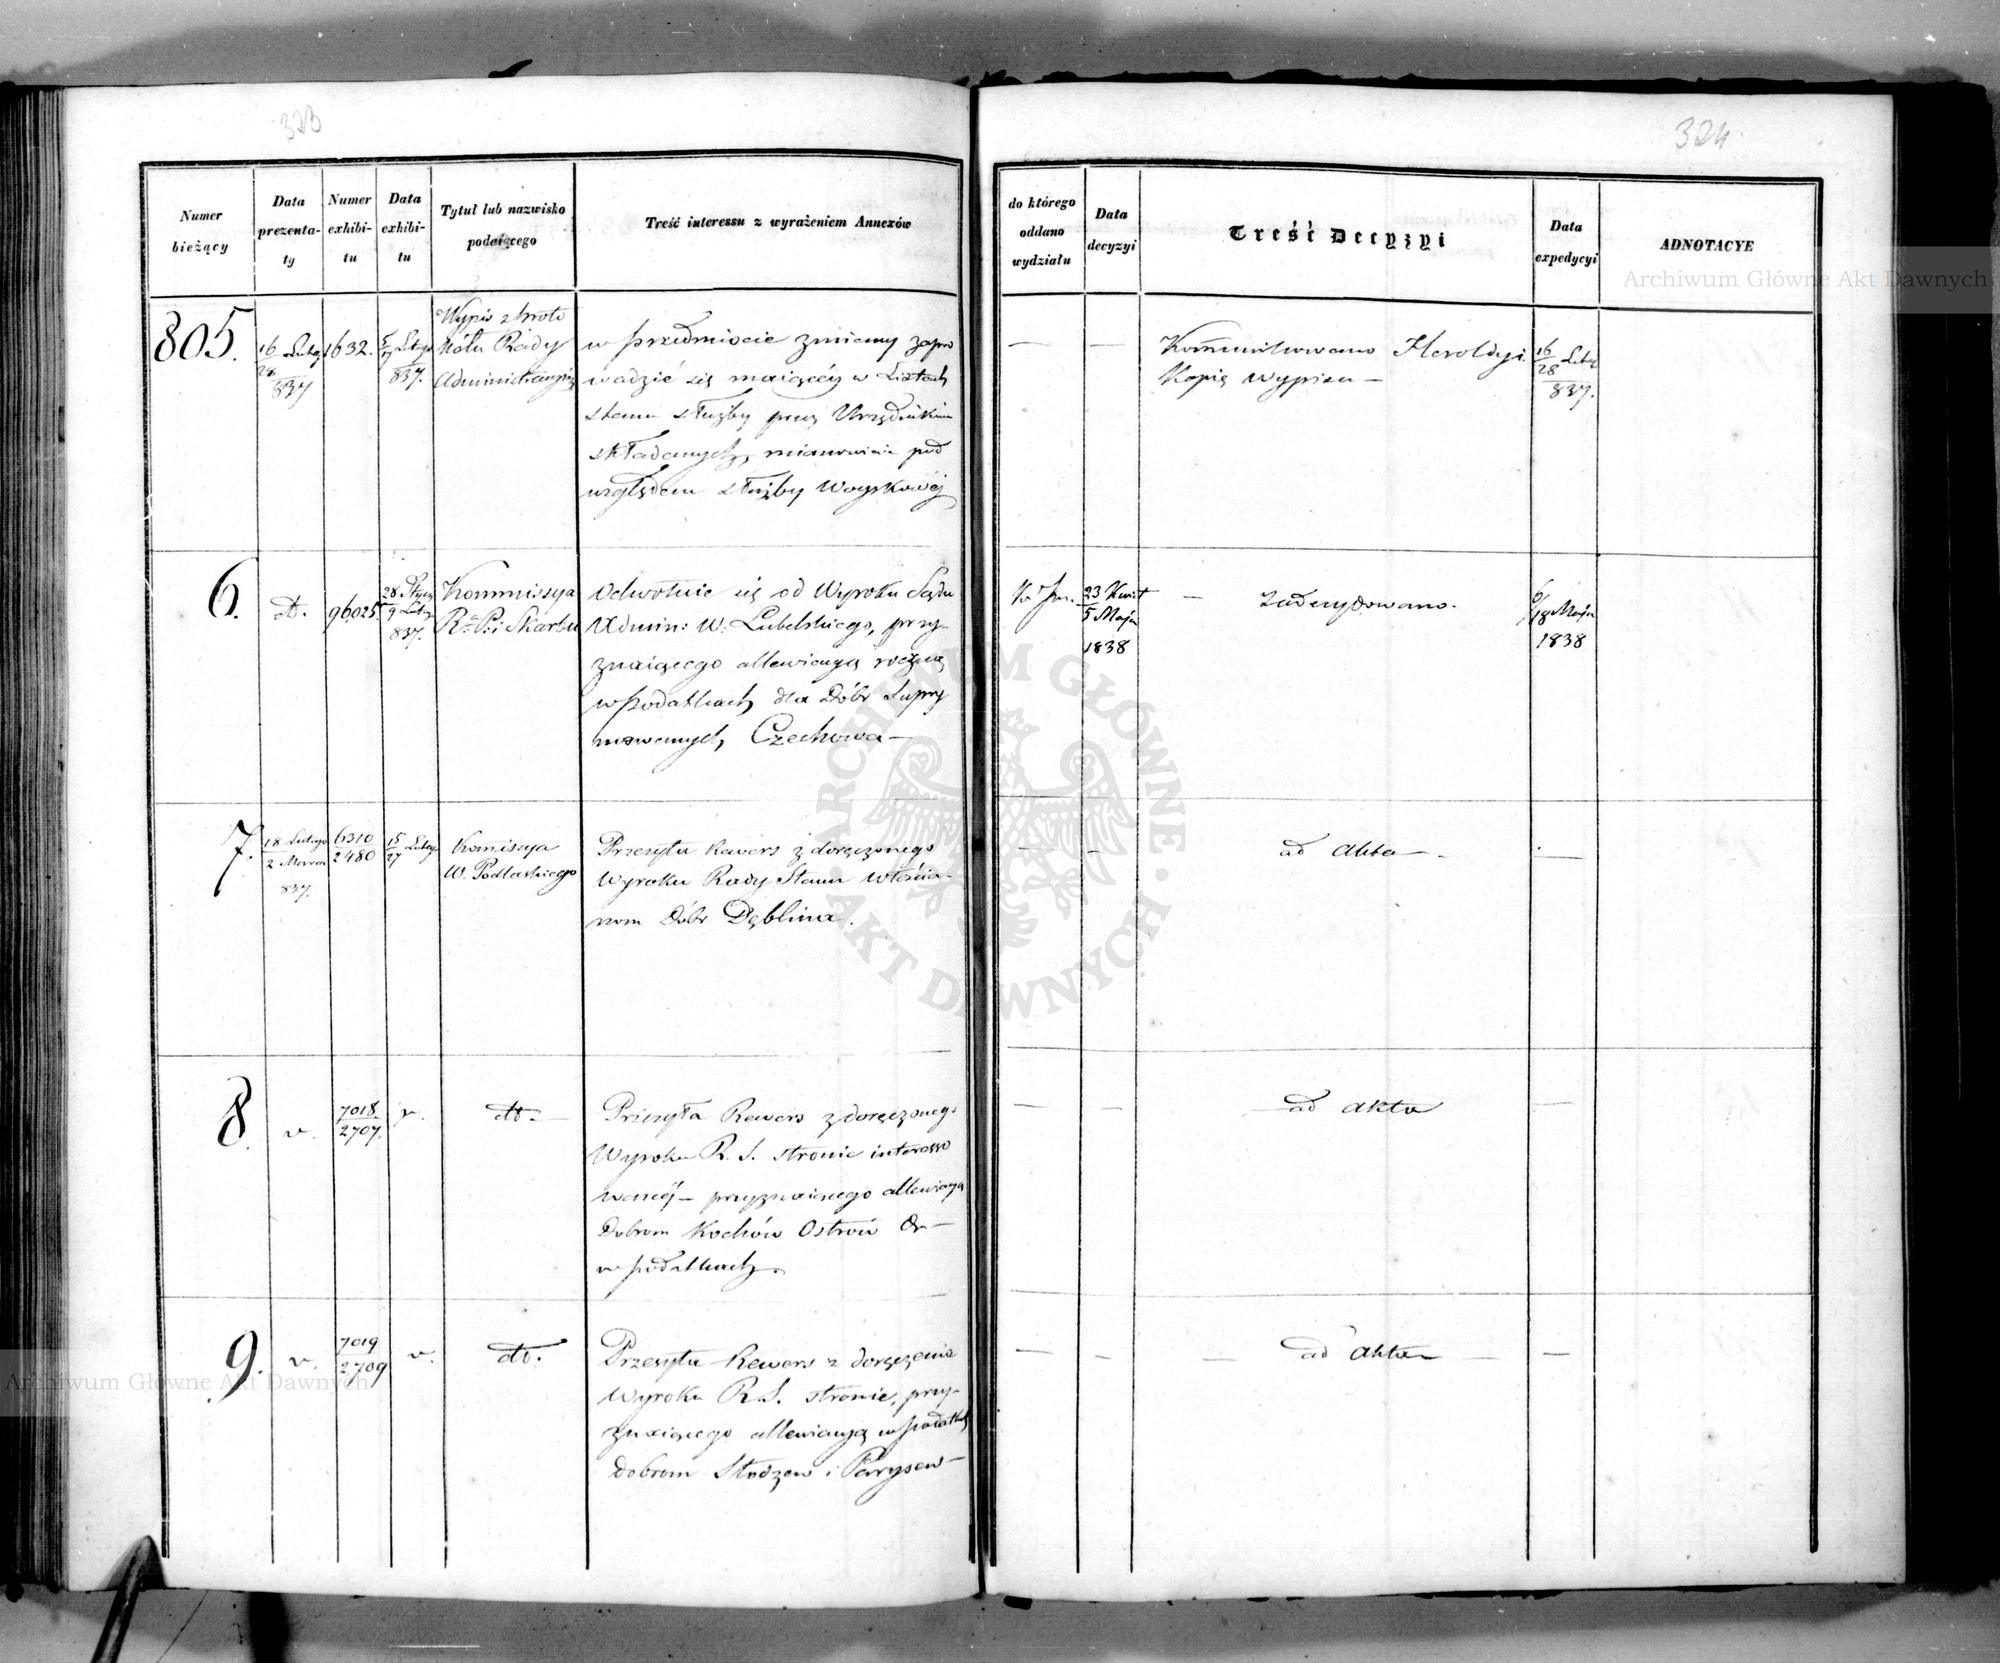 323
324
Numer bieżący
Data prezentaty
Numer exhibitu
Data exhibitu
Tytuł lub nazwisko podaiącego
Treść interessu z wyrażeniem Annexów
do którego oddano wydziału
Data decyzyi
Treść Decyzyi
Data expedycyi
ADNOTACYE
805.
16
28
837
1632.
5
17
837.
Wypis z Proto
kółu Rady
Administracyjnéy
w przedmiocie zmiany zapro
wadzić się maiącéy w Listach
stanu służby przez Urzędników
składanych, mianowicie pod
względem służby Woyskowéy
— —
Kommunikowano Heroldyi
Kopię wypisu —
16
28
837.
6.
dt.
96025
28 Stycz
9 Lutego
837.
Kommissya
R. P. i Skarbu
Odwołuie się od Wyroku Sądu
Admin: W: Lubelskiego, przy-
znaiącego allewiacyą roczną
w podatkach dla Dóbr Supry
mowanych, Czechowa —
23 Kwiet
5 Maja
1838
— Zadecydowano.
6
18 Maja
1838
7.
18 Lutego
2 Marca
837.
6310
2480
15
27 Lutego
Komissya
W. Podlaskiego
Przesyła Rewers z doręczonego
Wyroku Rady Stanu włościa-
nom Dóbr Dęblina.
— —
ad Akta —
—
8.
v.
7018.
2707.
v.
dt. —
Przesyła Rewers z doręczonego
Wyroku R. S. stronie interesso
wanéy — przyznaiącego allewiacyą
Dobrom Kochów Ostrów &c —
w podatkach.
— —
ad Akta
—
9.
v.
7019
2709
v.
dt.
Przesyła Rewers z doręczenia
Wyroku R. S. stronie, przy-
znaiącego allewiacyą w podatkach
dobrom Słodzew i Parysew —
— —
— ad Akta —
—
Archiwum Główne Akt Dawnych
Archiwum Główne Akt Dawnych
ARCHIWUM GŁÓWNE · AKT DAWNYCH ·